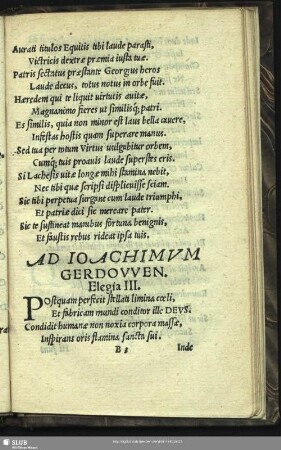 Aurati titulos Equitis tibi laude parasti,
Victricis dextræ præmia iusta tuæ.
Patris sectatus præstante Georgius heros
Laude decus, totus notus in orbe fuit.
Hæredem qui te liquit virtutis auitæ,
Magnanimo fieres ut similisq́; patri.
Es similis, quia non minor est laus bella cauere,
Infestas hostis quam superare manus.
Sed tua per totum Virtus uulgabitur orbem,
Cumq́; tuis proauis laude superstes eris.
Si Lachesis uitæ longæ mihi stamina nebit,
Nec tibi quæ scripsi displicuisse sciam.
Sic tibi perpetua surgant cum laude triumphi,
Et patriæ dici sic mereare pater.
Sic te sustineat manibus fortuna benignis,
Et faustis rebus rideat ipsa tuis.
AD IOACHIMVM
GERDOVVEN.
Elegia III.
Postquam perfecit stellati limina cœli,
Et fabricam mundi conditor ille DEVS.
Condidit humanæ non noxia corpora massæ,
Inspirans oris flamina sancta sui.
B 3 Inde
SLUB